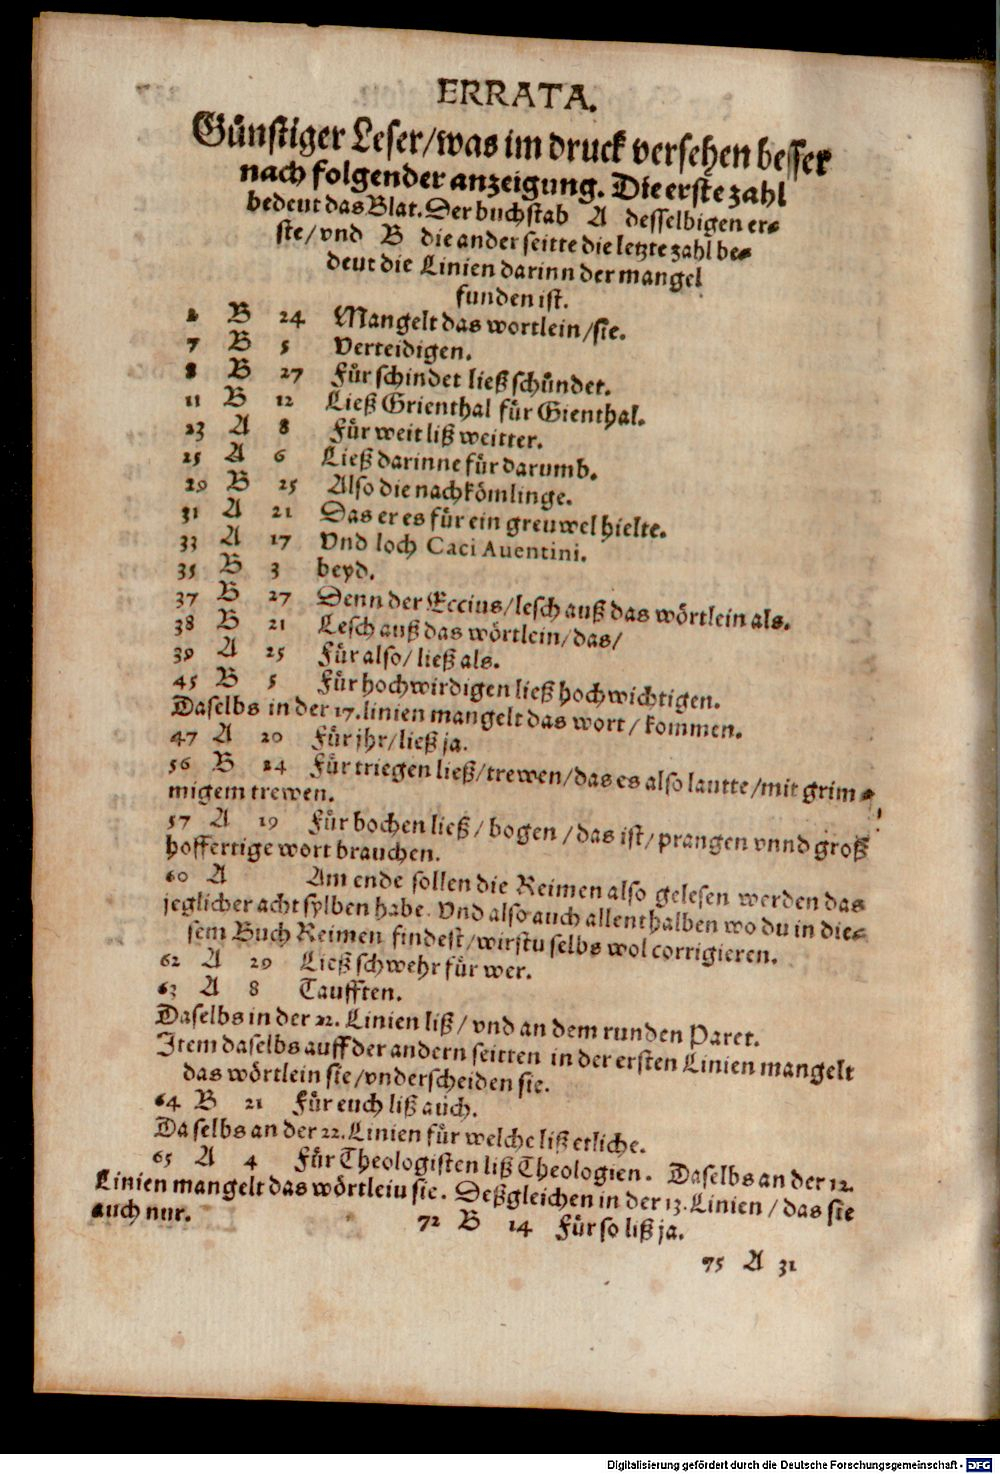 ERRATA.
Günstiger Leser/was im druck versehen besser
nach folgender anzeigung. Die erste zahl
bedeut das Blat. Der buchstab A desselbigen er=
ste/vnd B die ander seitte die letzte zahl be=
deut die Linien darinn der mangel
funden ist.
2 B 24 Mangelt das wortlein/sie.
7 B 5 Verteidigen.
8 B 27 Für schindet ließ schündet.
11 B 12 Ließ Grienthal für Gienthal.
23 A 8 Für weit liß weitter.
25 A 6 Ließ darinne für darumb.
29 B 25 Also die nachkömlinge.
31 A 21 Das er es für ein greuwel hielte.
33 A 17 Vnd loch Caci Auentini.
35 B 3 beyd.
37 B 27 Denn der Eccius/lesch auß das wörtlein als.
38 B 21 Lesch auß das wörtlein/das/
39 A 25 Für also/ließ als.
45 B 5 Für hochwirdigen ließ hochwichtigen.
Daselbs in der 17.linien mangelt das wort/kommen.
47 A 20 Für jhr/ließ ja.
56 B 24 Für triegen ließ/trewen/das es also lautte/mit grim=
migem trewen.
57 A 19 Für bochen ließ/bogen/das ist/prangen vnnd groß
hoffertige wort brauchen.
60 A Am ende sollen die Reimen also gelesen werden das
jeglicher acht sylben habe. Vnd also auch allenthalben wo du in die=
sem Buch Reimen findest/wirstu selbs wol corrigieren.
62 A 29 Ließ schwehr für wer.
63 A 8 Taufften.
Daselbs in der 22. Linien liß/vnd an dem runden Paret.
Item daselbs auff der andern seitten in der ersten Linien mangelt
das wörtlein sie/vnderscheiden sie.
64 B 21 Für euch liß auch.
Daselbs an der 22.Linien für welche liß etliche.
65 A 4 Für Theologisten liß Theologien. Daselbs an der 12.
Linien mangelt das wörtleiu sie. Deßgleichen in der 13.Linien/das sie
auch nur. 72 B 14 Für so liß ja.
75 A 31
Digitalisierung gefördert durch die Deutsche Forschungsgemeinschaft - DFG